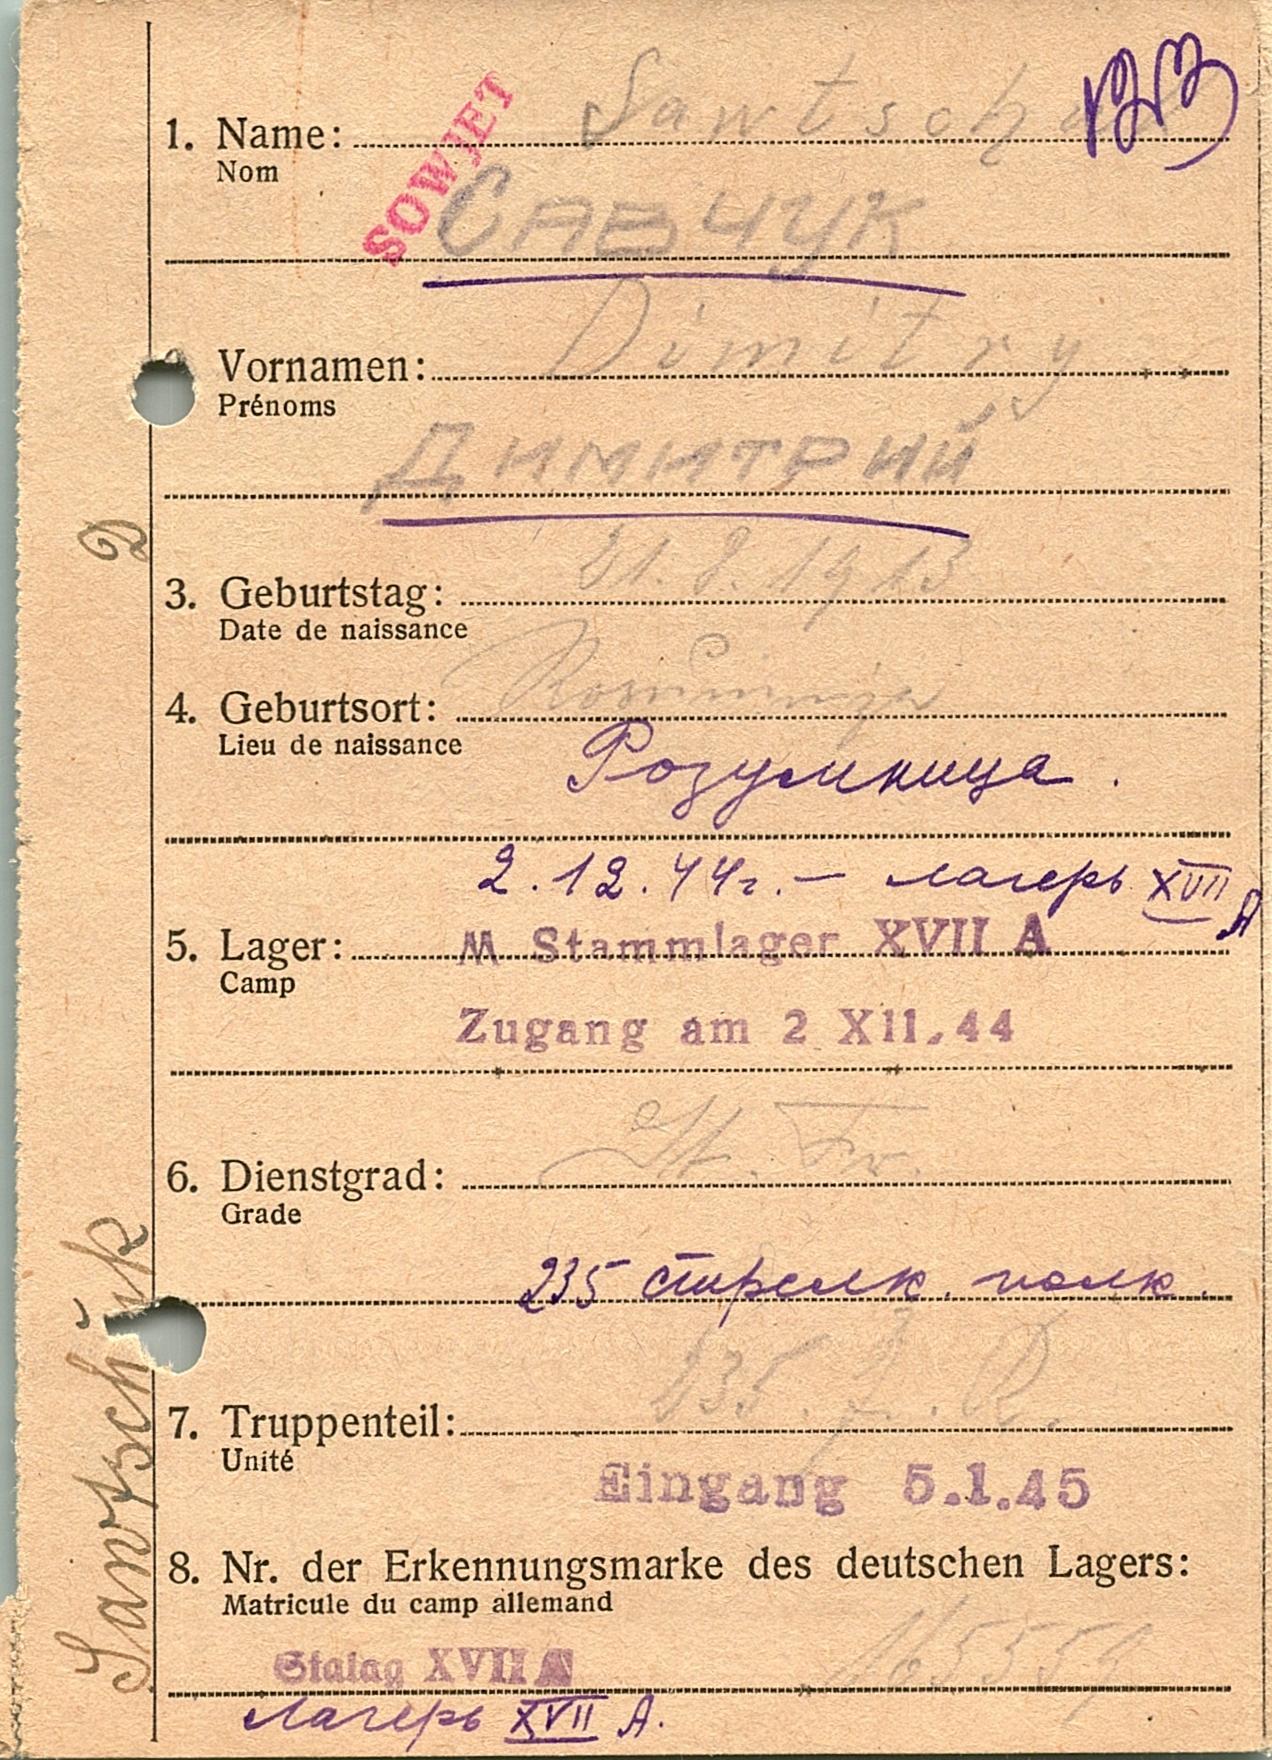 1. Name: Sawtschuk
Nom
SOWJET
САВЧУК
Vornamen: Dimitry
Prénoms
ДИМИТРИЙ
3. Geburtstag: 21.8.1913
Date de naissance
4. Geburtsort:
Lieu de naissance
Розумница.
2.12.44г. – лагерь XVII A
5. Lager: M Stammlager XVII A
Camp
Zugang am 2 XII.44
6. Dienstgrad:
Grade
235 стрелк. полк.
7. Truppenteil: 235. J. R.
Unité
Eingang 5.1.45
8. Nr. der Erkennungsmarke des deutschen Lagers:
Matricule du camp allemand
Stalag XVII A 165559
лагерь XVII А.
Sawtschuk D